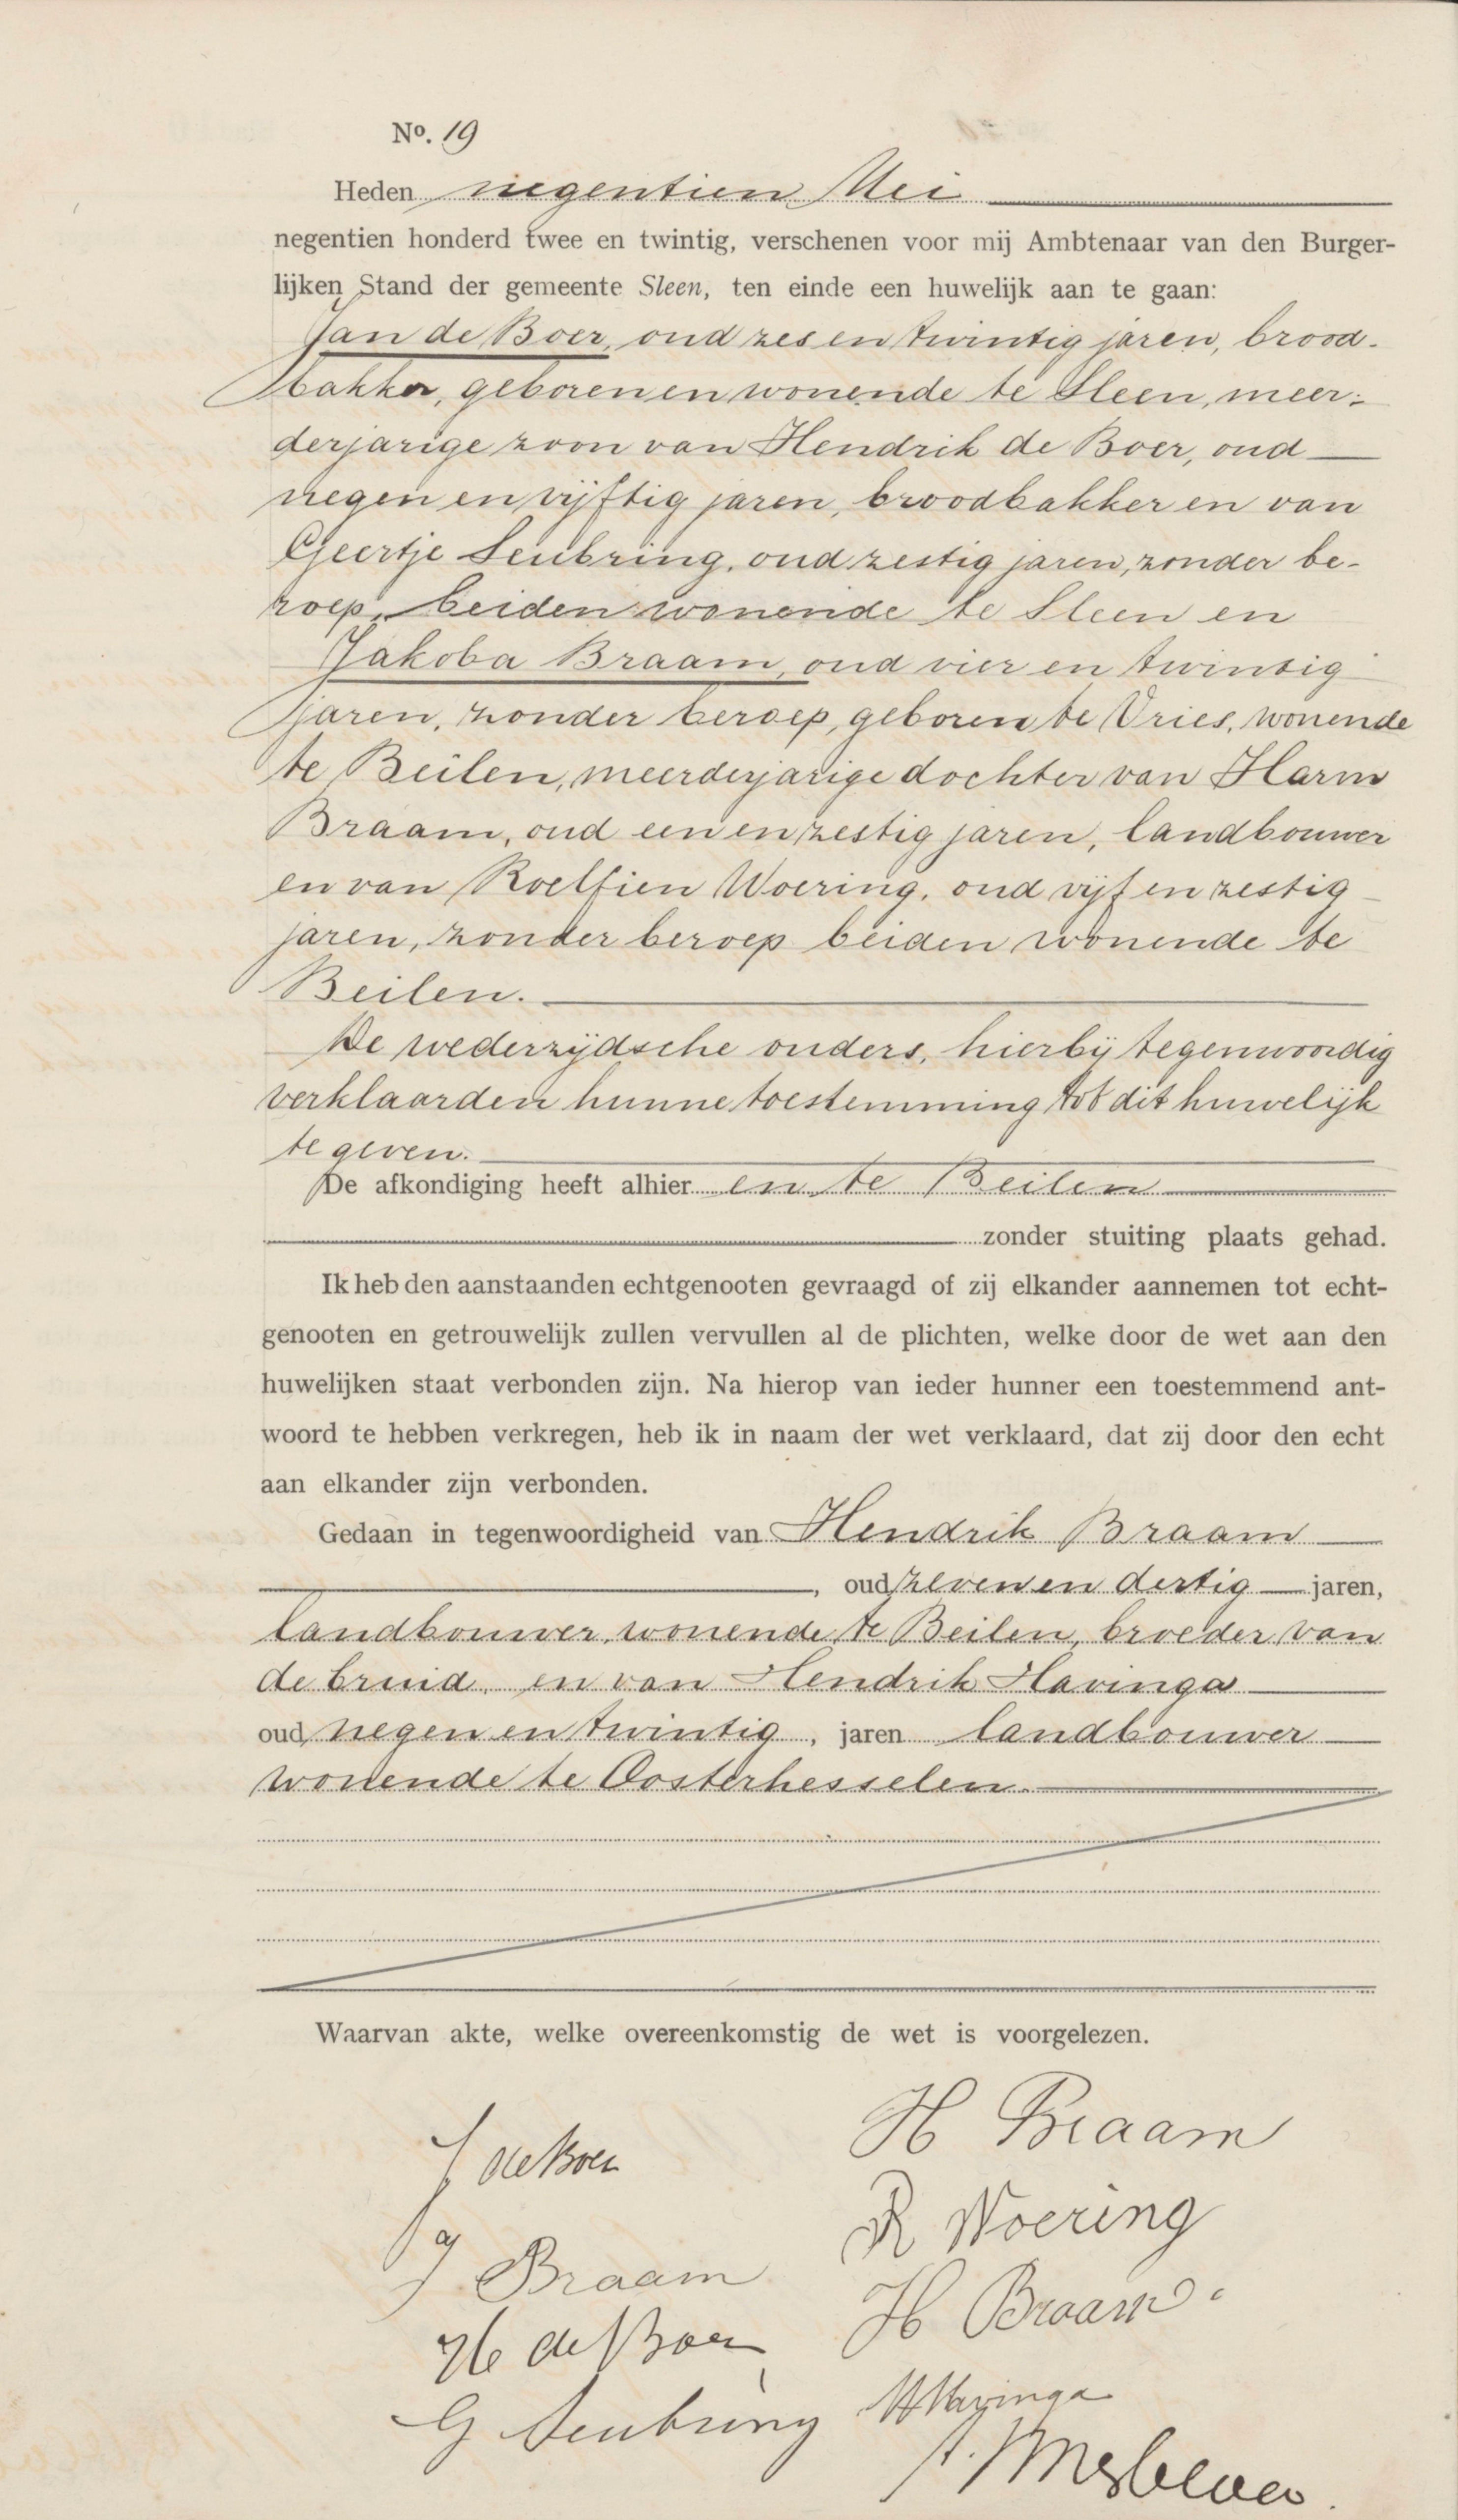 No. 19
Heden negentien Mei
negentien honderd twee en twintig, verschenen voor mij Ambtenaar van den Burger-
lijken Stand der gemeente Sleen, ten einde een huwelijk aan te gaan:
Jan de Boer, oud zes en twintig jaren, brood-
bakker, geboren en wonende te Sleen, meer-
derjarige zoon van Hendrik de Boer, oud
negen en vijftig jaren, broodbakker en van
Geertje Seubring, oud zestig jaren, zonder be-
roep, beiden wonende te Sleen en
Jakoba Braam, oud vier en twintig
jaren, zonder beroep, geboren te Vries, wonende
te Beilen, meerderjarige dochter van Harm
Braam, oud een en zestig jaren, landbouwer
en van Roelfien Woering, oud vijf en zestig
jaren, zonder beroep beiden wonende te
Beilen.
De wederzijdsche ouders, hierbij tegenwoordig
verklaarden hunne toestemming tot dit huwelijk
te geven.
De afkondiging heeft alhier en te Beilen
zonder stuiting plaats gehad.
Ik heb den aanstaanden echtgenooten gevraagd of zij elkander aannemen tot echt-
genooten en getrouwelijk zullen vervullen al de plichten, welke door de wet aan den
huwelijken staat verbonden zijn. Na hierop van ieder hunner een toestemmend ant-
woord te hebben verkregen, heb ik in naam der wet verklaard, dat zij door den echt
aan elkander zijn verbonden.
Gedaan in tegenwoordigheid van Hendrik Braam
, oud zeven en dertig jaren,
landbouwer, wonende te Beilen, broeder van
de bruid, en van Hendrik Havinga
oud negen en twintig, jaren landbouwer
wonende te Oosterhesselen.
Waarvan akte, welke overeenkomstig de wet is voorgelezen.
J de Boer
H Braam
R Woering
J Braam
H Braam.
H de Boer
HHavinga
G Seubring